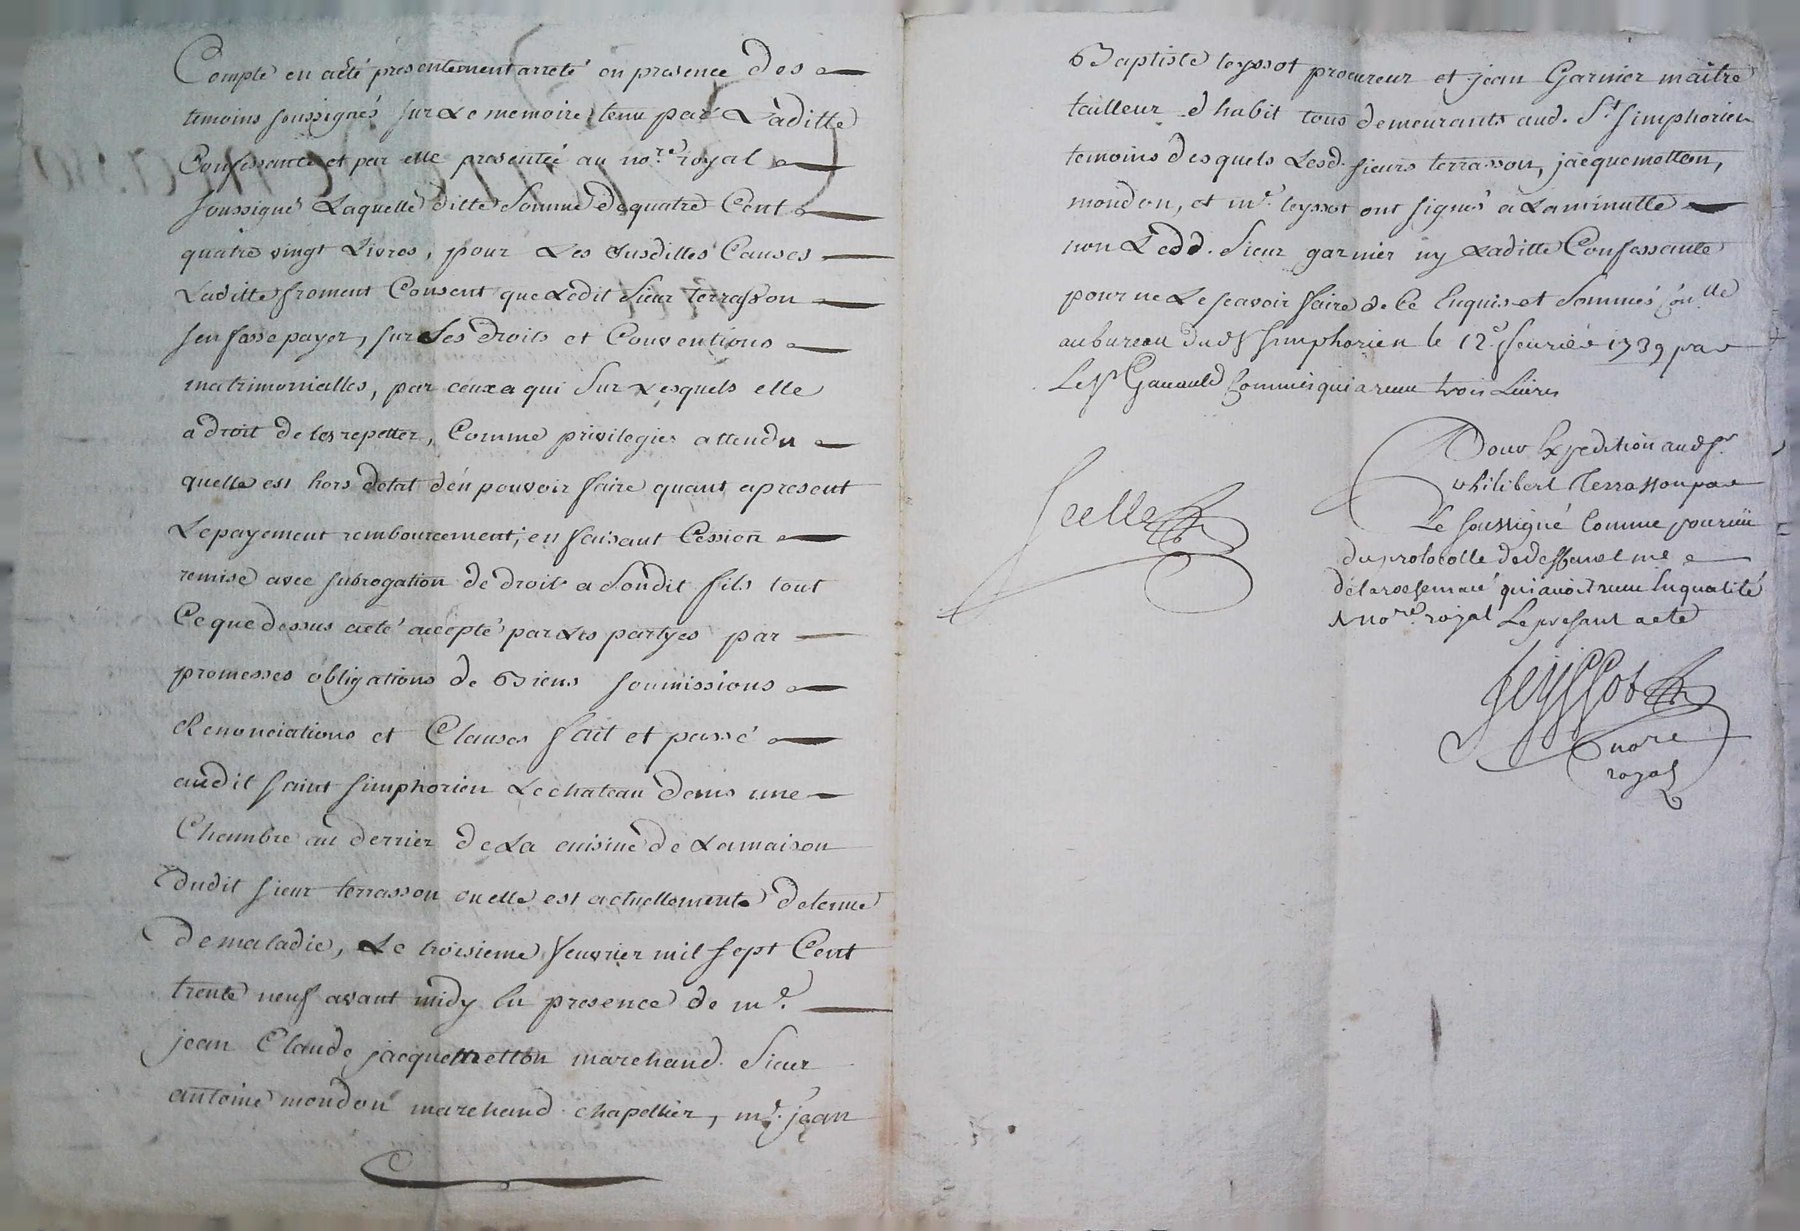 Compte en a été presentement arreté en presence des
temoins soussignés sur Le memoire tenu par Laditte
Confessante et par elle presentée au no.re royal
soussigné Laquelle ditte Somme de quatre Cent
quatre vingt Livres, pour Les Susdittes Causes
Laditte froment Consent que Ledit Sieur terrasson
sen fasse payer, sur Ses droits et Conventions
matrimonialles, par ceux a qui Sur Lesquels elle
a droit de les repetter, Comme privilegier attendu
quelle est hors detat d'én pouvoir faire quant apresent
Le payement rembourcement; en faisant Cession
remise avec subrogation de droits a Sondit fils tout
Ce que dessus a été accepté par Les partyes par
promesses obligations de Biens soumissions
Renonciations et Clauses fait et passé
audit saint Simphorien Le chateau dans une
Chambre au derrier de La cuisine de La maison
dudit sieur terrasson ou elle est actuellement detenue
de maladie, Le troisieme feuvrier mil sept Cent
trente neuf avant midy En presence de m.e
jean Claude jacquemetton marchand. Sieur
antoine mondon marchand chapellier, m.e jean
Baptiste teyssot procureur et jean Garnier maitre
tailleur d'habit tous demeurants aud. St simphorien
temoins desquels Lesd. sieurs terrasson, jacquemetton,
mondon, et m.e teyssot ont signés a La minutte
non Ledd. Sieur garnier ny Laditte Confessante
pour ne Le scavoir faire de Ce Enquis et Sommés Con.lle
au bureau dud St simphorien le 12.e feurier 1739 par
Le Sr Commis qui a reçeu trois Livres
Scellé
Pour Expedition aud Sr.
philibert Terrasson par
Le soussigné Comme pourvû
du protocolle de deffunt me
qui avoit reçeu En qualité
de no.re royal Le presant acte
teyssot
no.re
royal